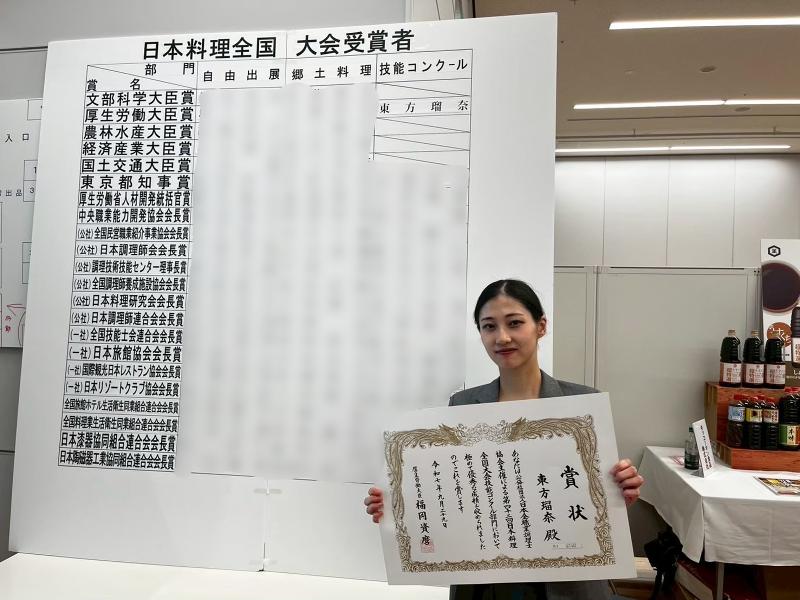 日本料理全国 大会受賞者
部門
賞名
自由出展
郷土料理
技能コンクール
文部科学大臣賞
厚生労働大臣賞
東方瑠奈
農林水産大臣賞
経済産業大臣賞
国土交通大臣賞
東京都知事賞
厚生労働省人材開発統括官賞
中央職業能力開発協会会長賞
(公社)全国民営職業紹介事業協会会長賞
(公社)日本調理師会会長賞
(公社)調理技術技能センター理事長賞
(公社)全国調理師養成施設協会会長賞
(公社)日本料理研究会会長賞
(公社)日本調理師連合会会長賞
(一社)全国技能士会連合会会長賞
(一社)日本旅館協会会長賞
(一社)国際観光日本レストラン協会会長賞
(一社)日本リゾートクラブ協会会長賞
全国旅館ホテル生活衛生同業組合連合会会長賞
全国料理業生活衛生同業組合連合会会長賞
日本漆器協同組合連合会会長賞
日本陶磁器工業協同組合連合会会長賞
入口
賞状
東方瑠奈殿
全国大会技能コンクール部門において
極めて優秀な成績を収められました
のでこれを賞します
令和七年九月二十九日
厚生労働大臣 福岡資麿